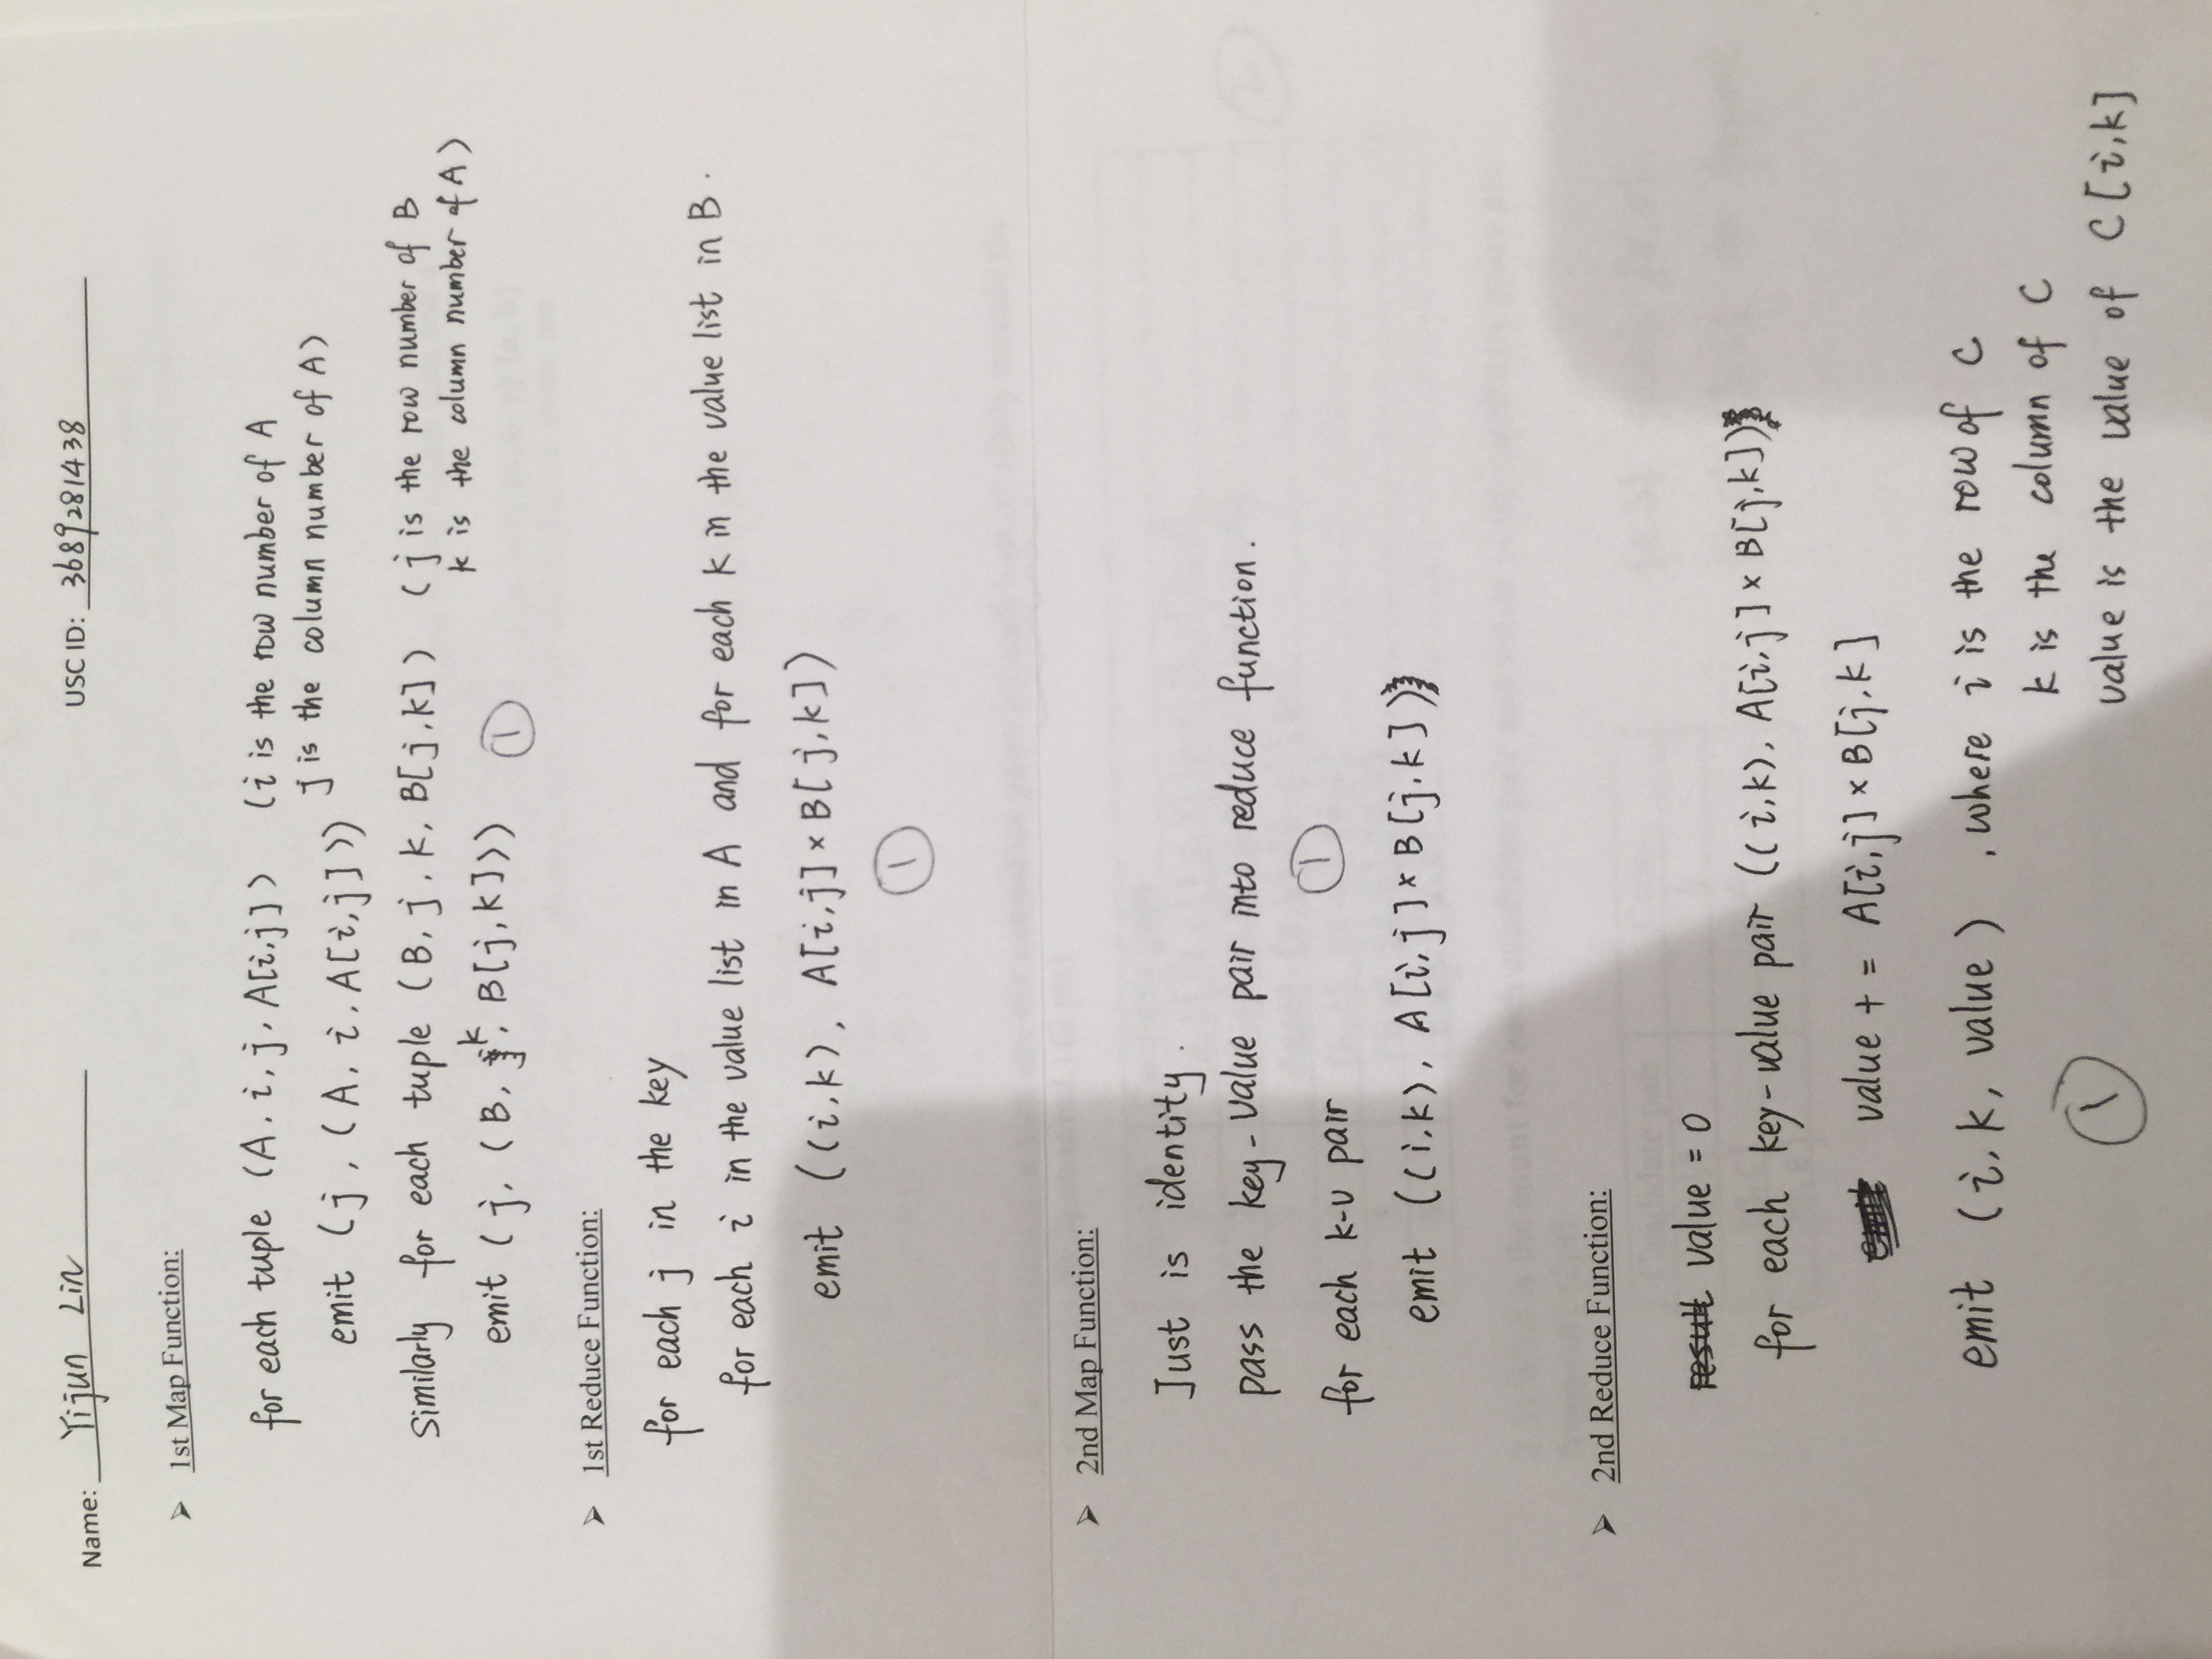 Name: Yijun Lin USC ID: 3689281438
➢ 1st Map Function:
for each tuple (A, i, j, A[i,j]) (i is the row number of A
j is the column number of A)
emit (j, (A, i, A[i,j]))
Similarly for each tuple (B, j, k, B[j,k]) (j is the row number of B
k is the column number of A)
emit (j, (B, k, B[j,k])) ①
➢ 1st Reduce Function:
for each j in the key
for each i in the value list in A and for each k in the value list in B.
emit ((i,k), A[i,j] × B[j,k])
①
➢ 2nd Map Function:
Just is identity.
pass the key-value pair into reduce function.
①
for each k-v pair
emit ((i,k), A[i,j] × B[j,k])
➢ 2nd Reduce Function:
result value = 0
for each key-value pair ((i,k), A[i,j] × B[j,k])
emit value + = A[i,j] × B[j,k]
emit (i, k, value) , where i is the row of C
k is the column of C
value is the value of C[i,k]
①